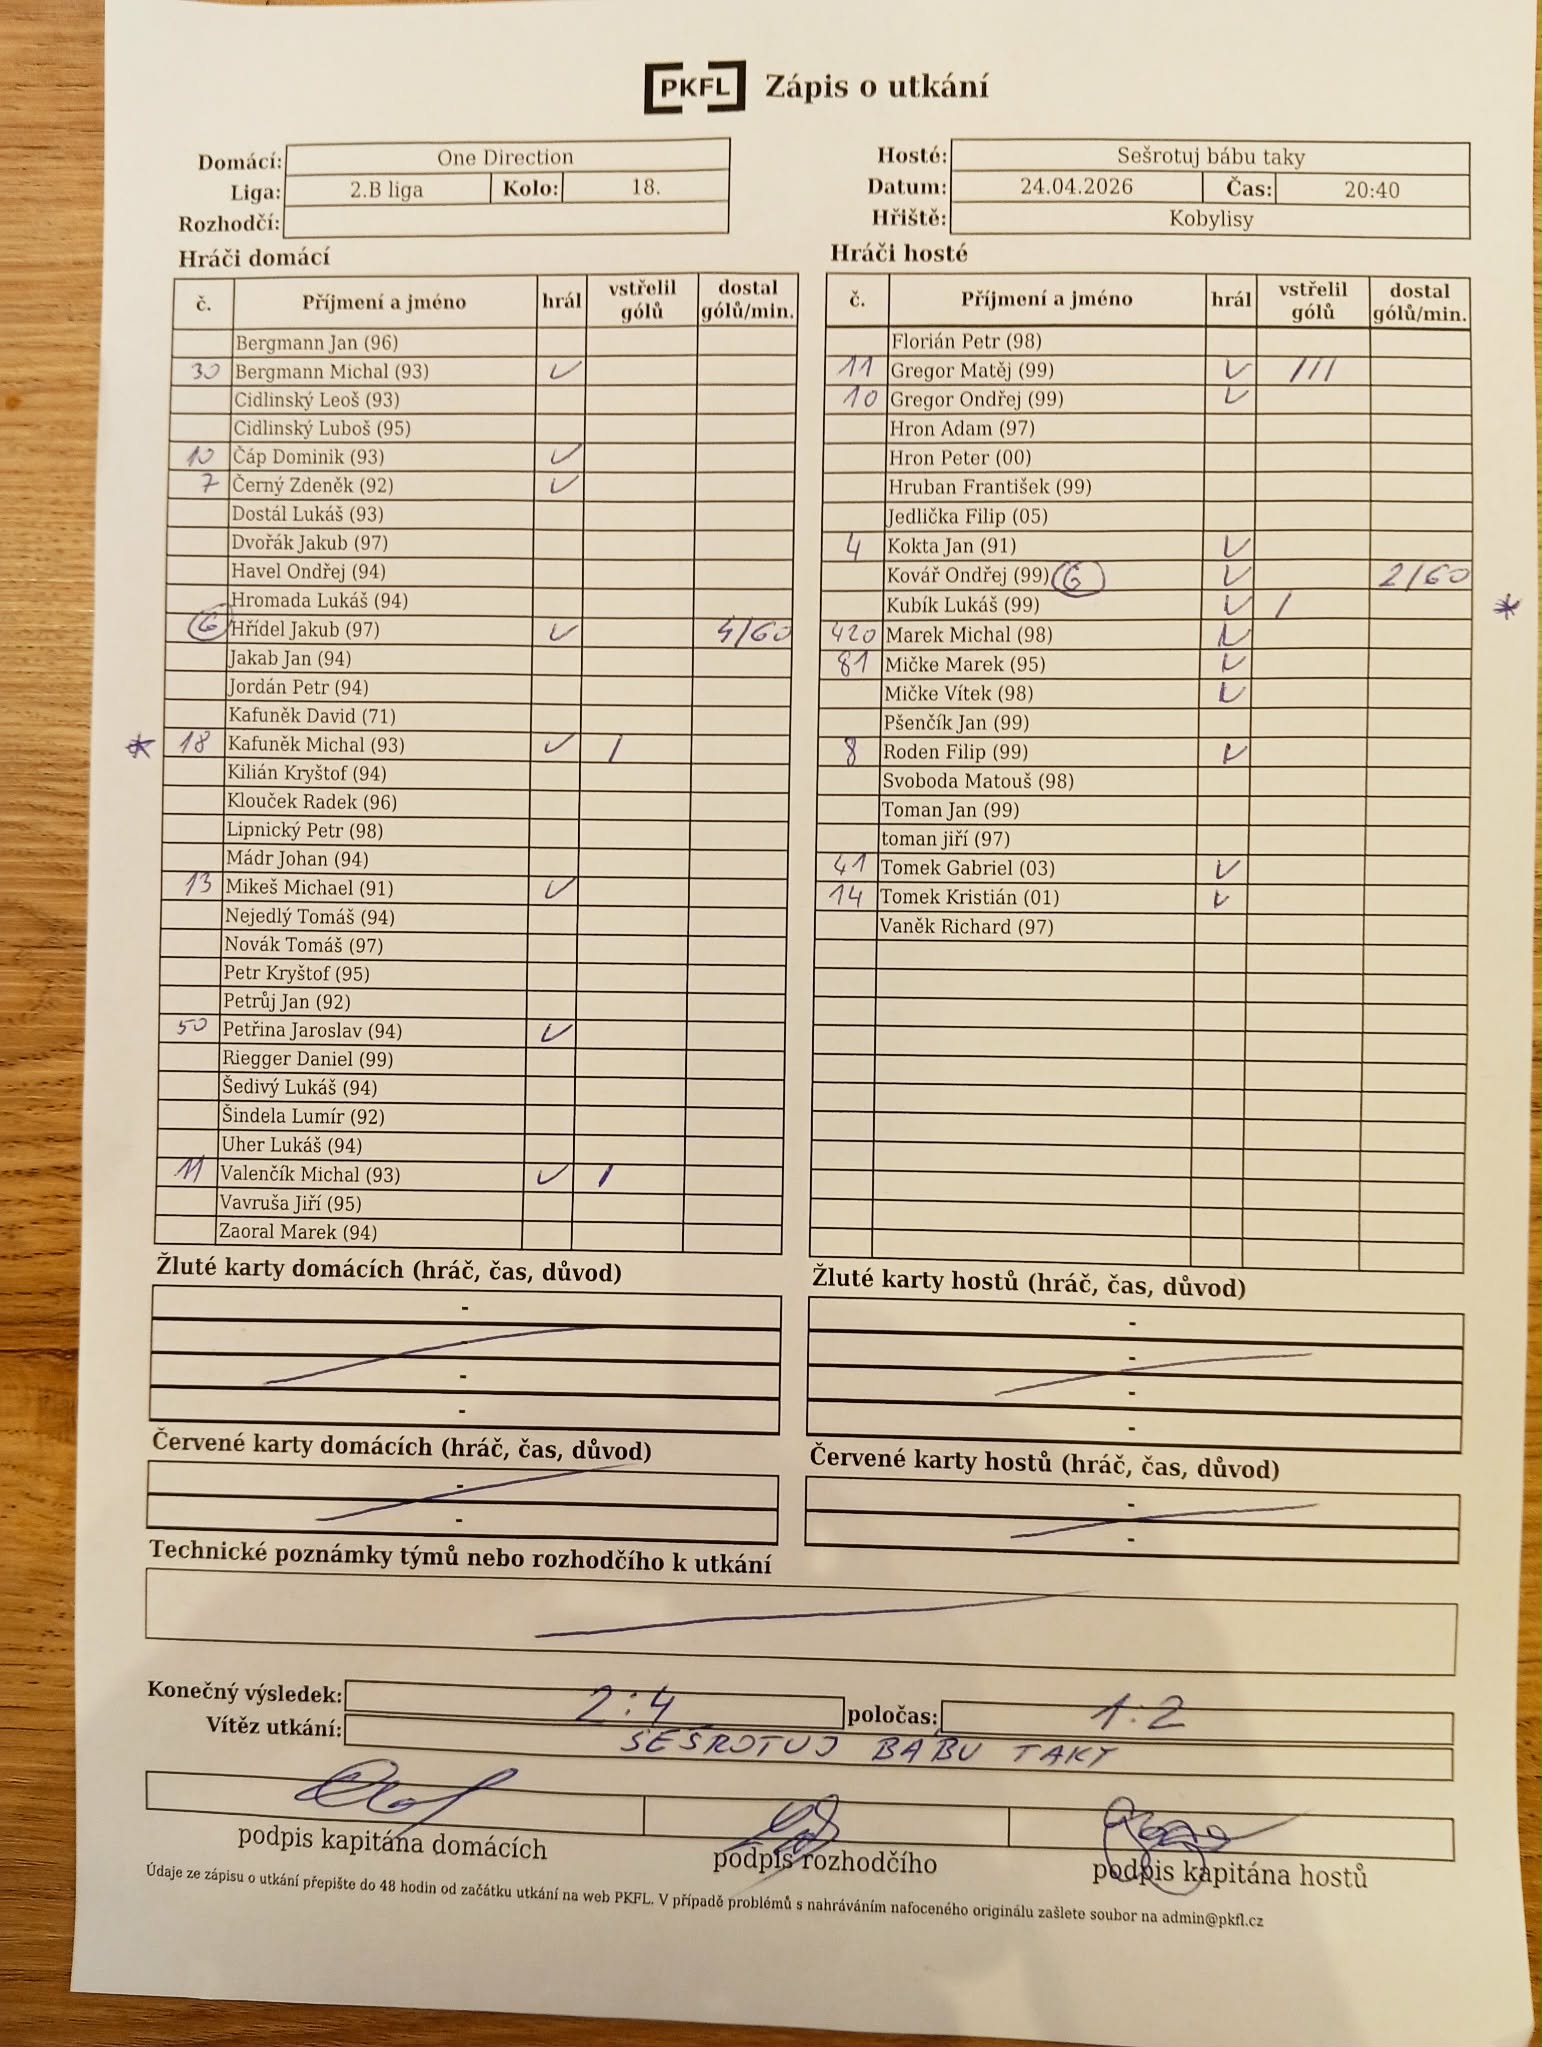 PKFL Zápis o utkání
Domácí: One Direction
Liga: 2.B liga Kolo: 18.
Rozhodčí:
Hosté: Sešrotuj bábu taky
Datum: 24.04.2026 Čas: 20:40
Hřiště: Kobylisy
Hráči domácí
č. Příjmení a jméno hrál vstřelil gólů dostal gólů/min.
Bergmann Jan (96)
30 Bergmann Michal (93) ✓
Cidlinský Leoš (93)
Cidlinský Luboš (95)
10 Čáp Dominik (93) ✓
7 Černý Zdeněk (92) ✓
Dostál Lukáš (93)
Dvořák Jakub (97)
Havel Ondřej (94)
Hromada Lukáš (94)
G Hřídel Jakub (97) ✓ 4/60
Jakab Jan (94)
Jordán Petr (94)
Kafuněk David (71)
* 18 Kafuněk Michal (93) ✓ /
Kilián Kryštof (94)
Klouček Radek (96)
Lipnický Petr (98)
Mádr Johan (94)
13 Mikeš Michael (91) ✓
Nejedlý Tomáš (94)
Novák Tomáš (97)
Petr Kryštof (95)
Petrůj Jan (92)
50 Petřina Jaroslav (94) ✓
Riegger Daniel (99)
Šedivý Lukáš (94)
Šindela Lumír (92)
Uher Lukáš (94)
11 Valenčík Michal (93) ✓ /
Vavruša Jiří (95)
Zaoral Marek (94)
Hráči hosté
č. Příjmení a jméno hrál vstřelil gólů dostal gólů/min.
Florián Petr (98)
11 Gregor Matěj (99) ✓ ///
10 Gregor Ondřej (99) ✓
Hron Adam (97)
Hron Peter (00)
Hruban František (99)
Jedlička Filip (05)
4 Kokta Jan (91) ✓
Kovář Ondřej (99) G ✓ 2/60
Kubík Lukáš (99) ✓ / *
420 Marek Michal (98) ✓
81 Mičke Marek (95) ✓
Mičke Vítek (98) ✓
Pšenčík Jan (99)
8 Roden Filip (99) ✓
Svoboda Matouš (98)
Toman Jan (99)
toman jiří (97)
41 Tomek Gabriel (03) ✓
14 Tomek Kristián (01) ✓
Vaněk Richard (97)
Žluté karty domácích (hráč, čas, důvod)
-
-
-
-
Žluté karty hostů (hráč, čas, důvod)
-
-
-
-
Červené karty domácích (hráč, čas, důvod)
-
-
Červené karty hostů (hráč, čas, důvod)
-
-
Technické poznámky týmů nebo rozhodčího k utkání
Konečný výsledek: 2:4 poločas: 1:2
Vítěz utkání: SEŠROTUJ BÁBU TAKY
podpis kapitána domácích podpis rozhodčího podpis kapitána hostů
Údaje ze zápisu o utkání přepište do 48 hodin od začátku utkání na web PKFL. V případě problémů s nahráváním nafoceného originálu zašlete soubor na admin@pkfl.cz